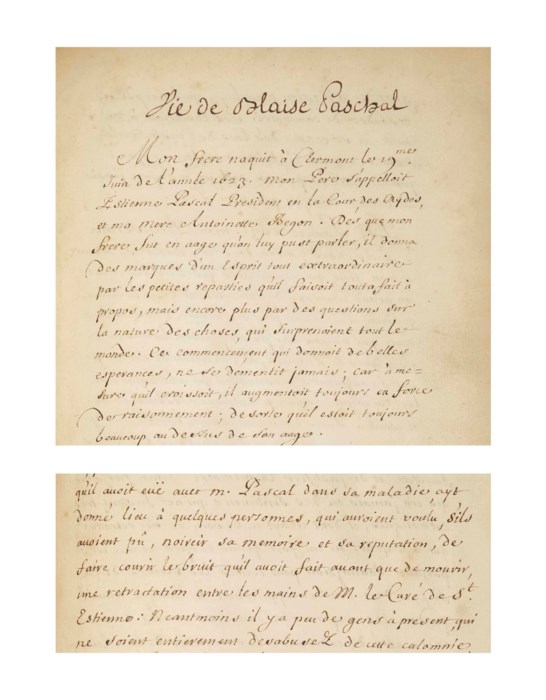 Vie de Blaise Paschal
Mon frere naquit à Clermont le 19.me
Juin de l'année 1623. mon Pere s'appelloit
Estienne Pascal President en la Cour des Aydes,
et ma mere Antoinette Begon. Dés que mon
frere fut en aage qu'on luy pust parler, il donna
des marques d'un Esprit tout extraordinaire
par les petites reparties qu'il faisoit tout a fait à
propos, mais encore plus par des questions sur
la nature des choses, qui surprenoient tout le
monde. Ce commencement qui donnoit de belles
esperances, ne se dementit jamais; car à me=
sure qu'il croissoit, il augmentoit toujours en force
de raisonnement; de sorte qu'il estoit toujours
beaucoup au dessus de son aage.
qu'il avoit eüe avec m. Pascal dans sa maladie, ayt
donné lieu à quelques personnes, qui auroient voulu, s'ils
avoient pû, noircir sa memoire et sa reputation, de
faire courir le bruit qu'il avoit fait avant que de mourir,
une retractation entre les mains de M. le Curé de St.
Estienne: Neantmoins il y a peu de gens à present, qui
ne soient entierement desabusez de cette calomnie,